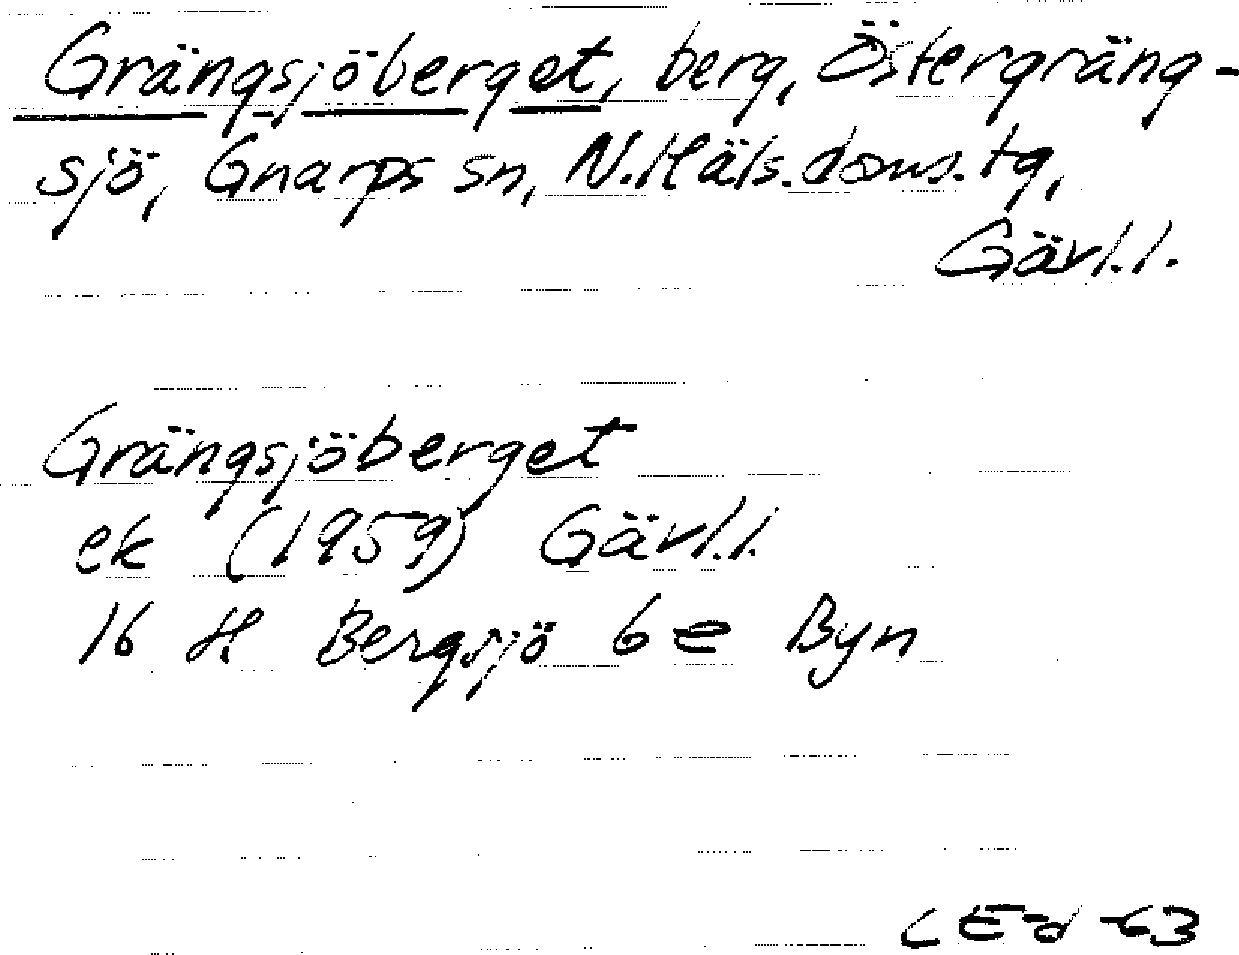 Grängsjöberget, berg, Östergräng-
sjö, Gnarps sn, N. Häls. doms. tg,
Gävl.l.
Grängsjöberget
ek (1959) Gävl.l.
16 H Bergsjö 6 e Byn
CEd -63